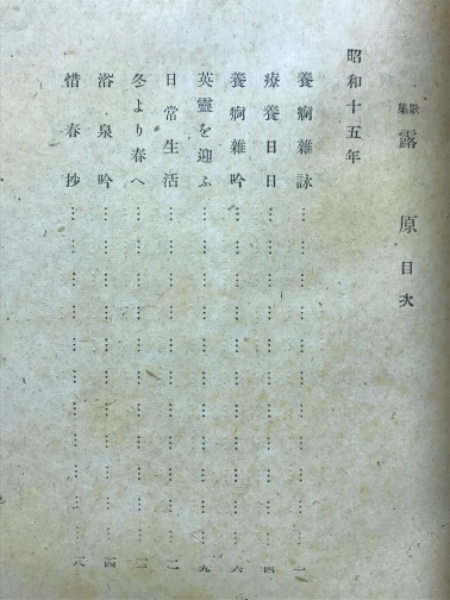 歌集 露原 目次
昭和十五年
養痾雜詠………………………………一
療養日日………………………………四
養痾雜吟………………………………六
英靈を迎ふ……………………………九
日常生活………………………………一一
冬より春へ……………………………一二
浴泉吟…………………………………一四
惜春抄…………………………………一八